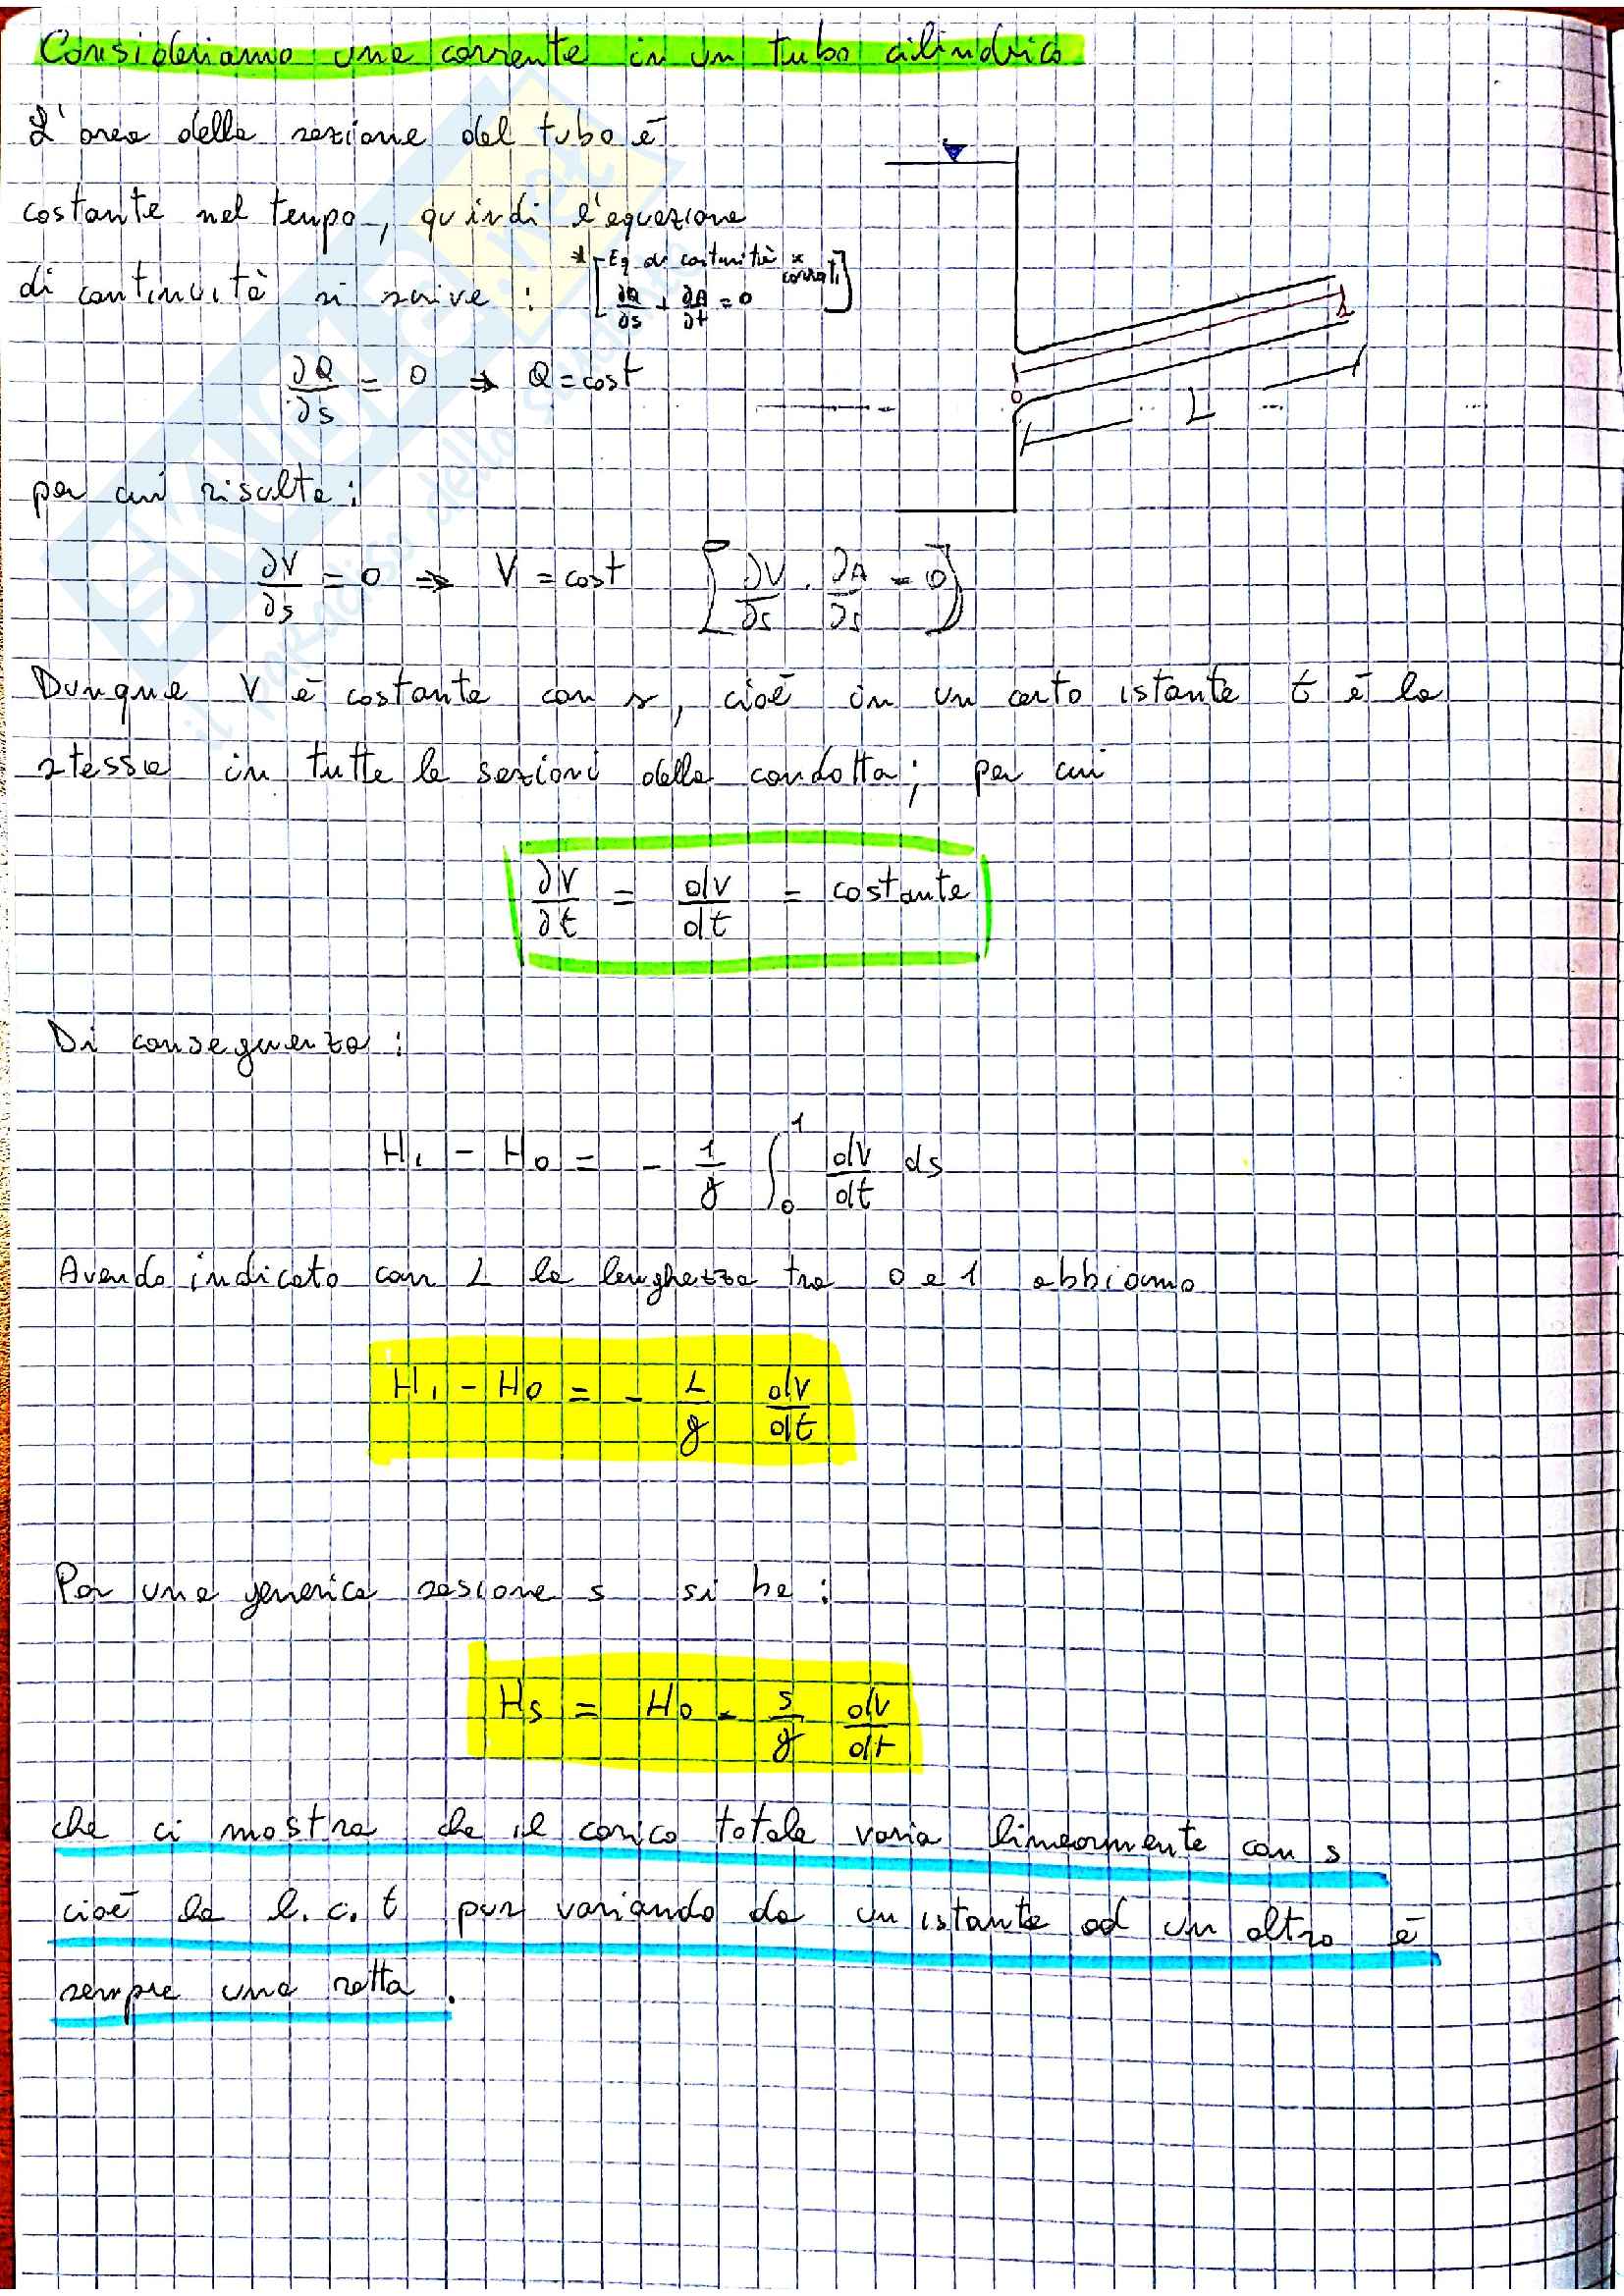 Consideriamo una corrente in un tubo cilindrico
L'area della sezione del tubo è
costante nel tempo, quindi l'equazione
di continuità si scrive : * [Eq di continuità x correnti
∂Q/∂s + ∂A/∂t = 0]
∂Q/∂s = 0 ⇒ Q = cost
0
1
L
per cui risulta :
∂V/∂s = 0 ⇒ V = cost [∂V/∂s · ∂A/∂s = 0]
Dunque V è costante con s, cioè in un certo istante t è la
stessa in tutte le sezioni della condotta; per cui
∂V/∂t = dV/dt = costante
Di conseguenza :
H1 - H0 = - 1/g ∫₀¹ dV/dt ds
Avendo indicato con L la lunghezza tra 0 e 1 abbiamo
H1 - H0 = - L/g dV/dt
Per una generica sezione s si ha :
Hs = H0 - s/g dV/dt
che ci mostra che il carico totale varia linearmente con s
cioè la l.c.t pur variando da un istante ad un altro è
sempre una retta .
SKUOLA.net
il paradiso dello studente